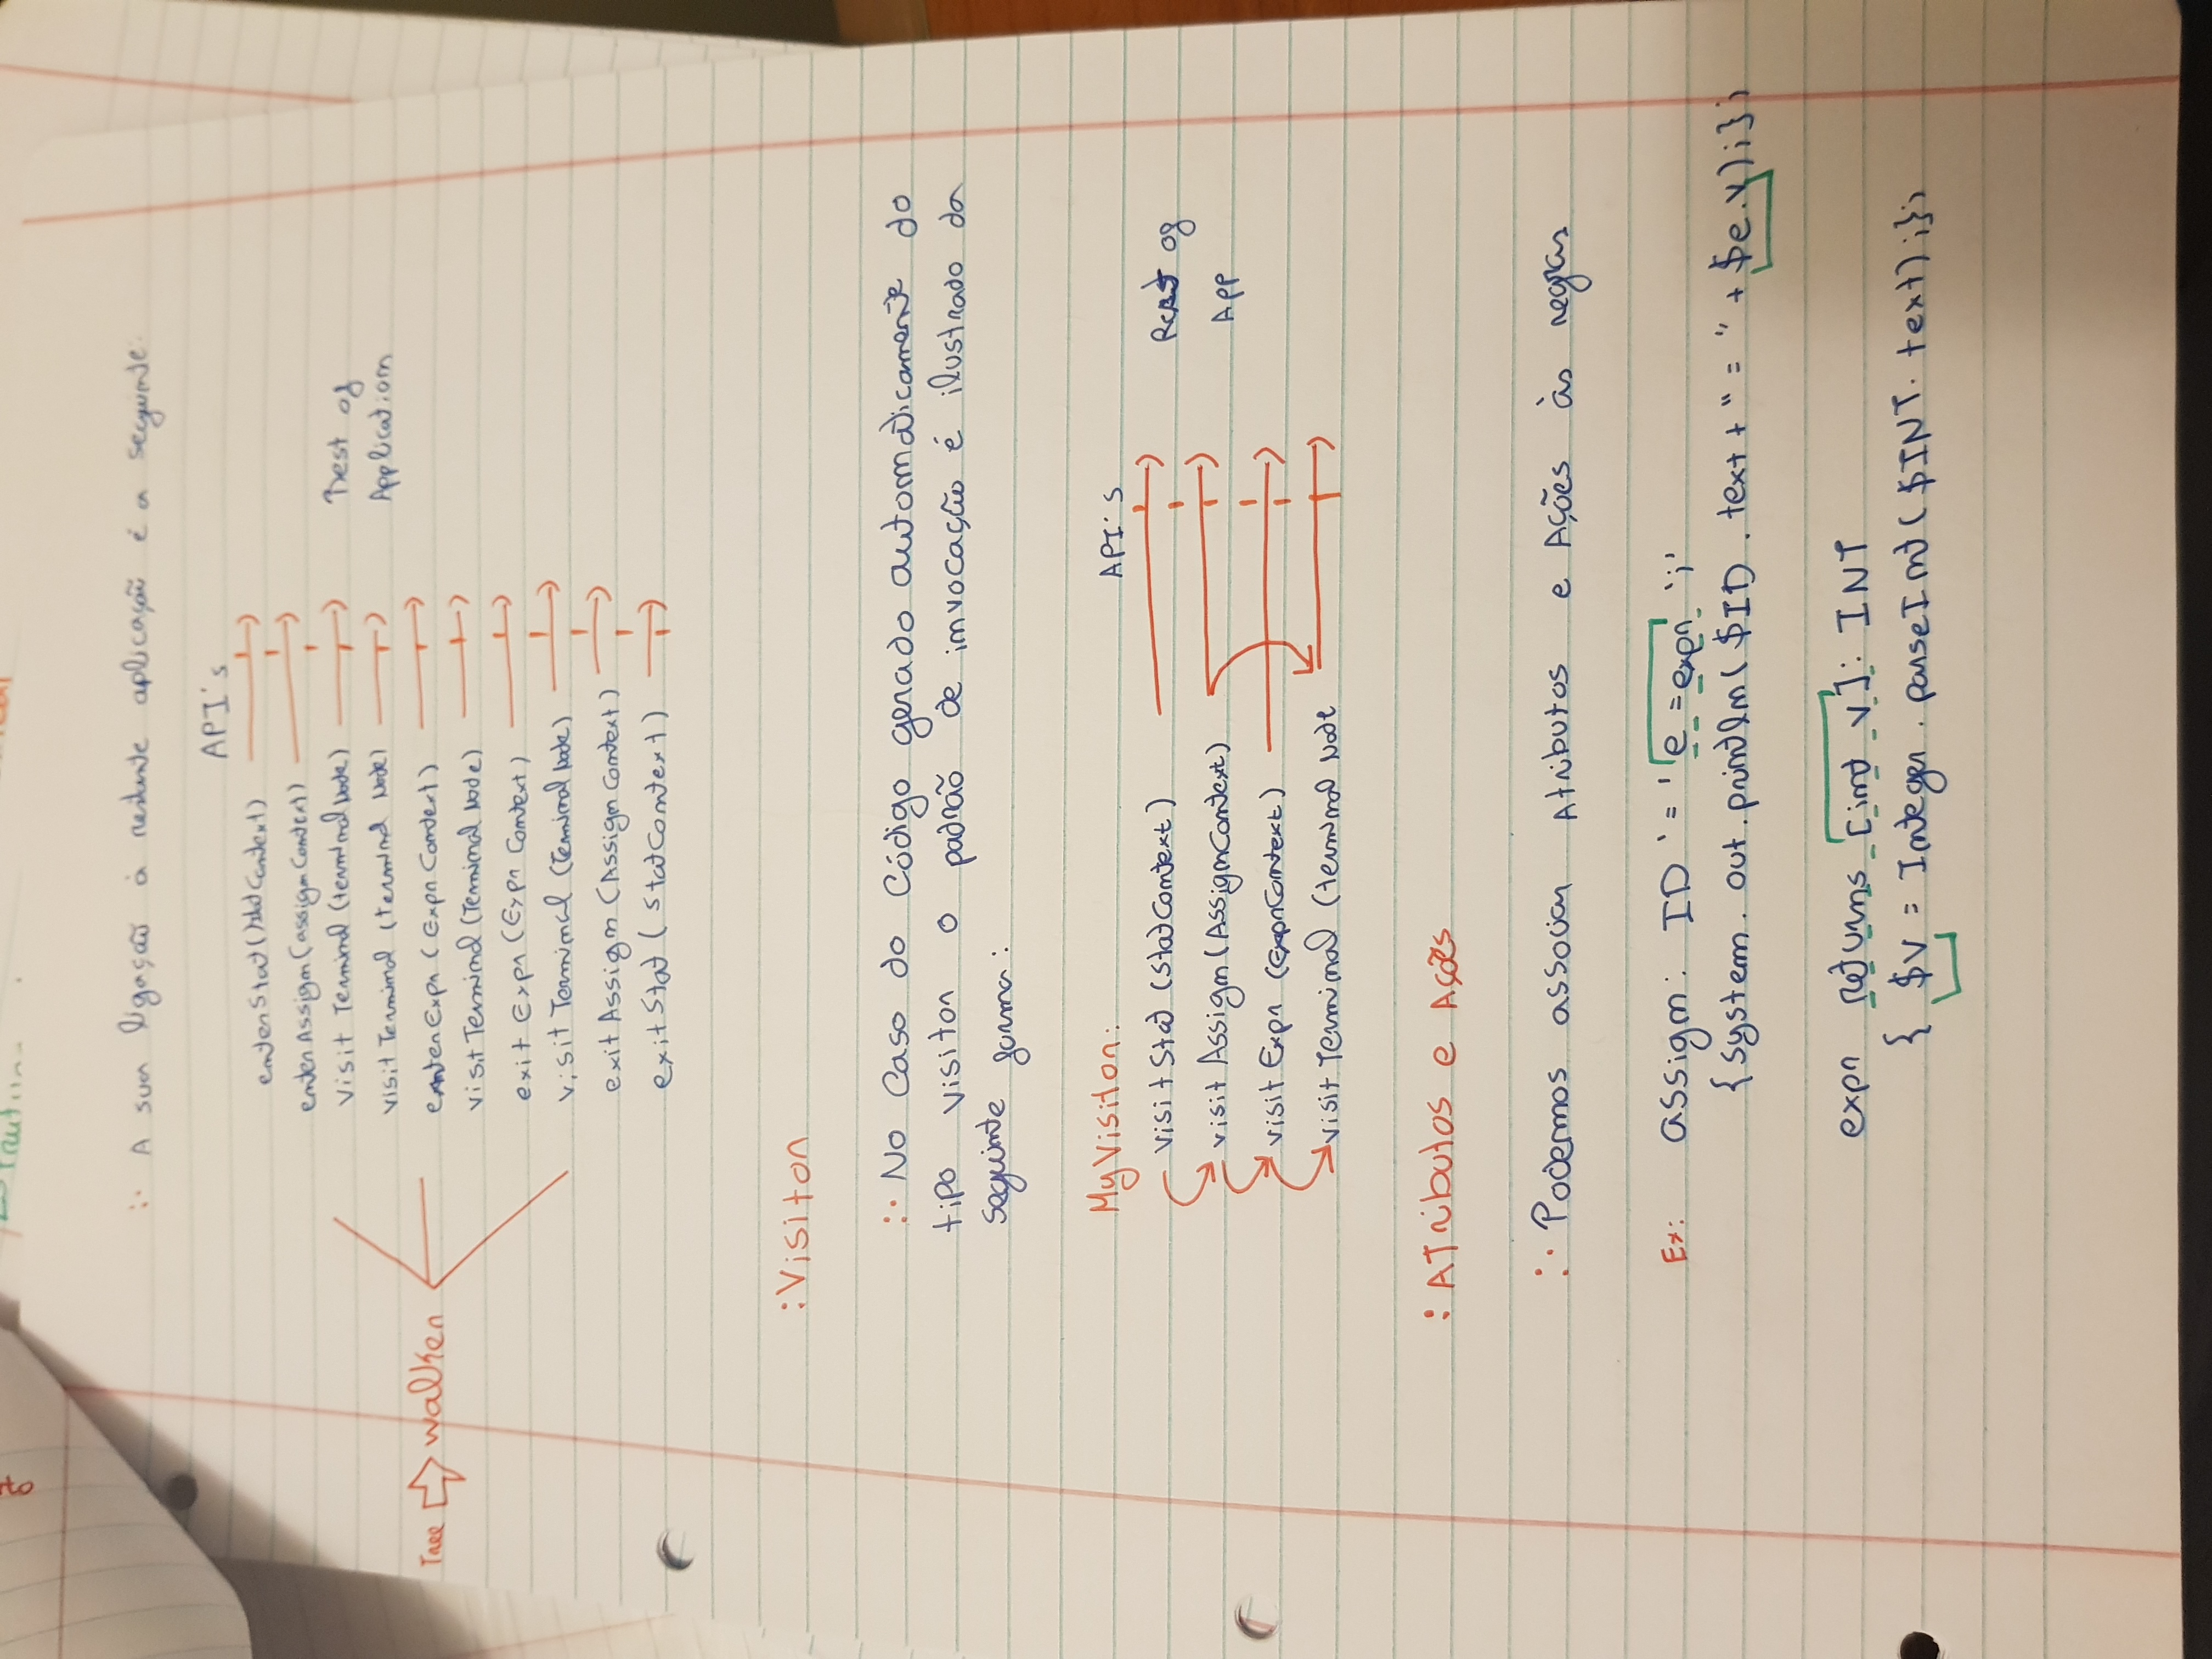 to
∴ A sua ligação à restante aplicação é a seguinte:
API's
enterStat(StatContext)
enter Assign(assignContext)
visit Terminal (terminal Node)
Rest of
visit Terminal (terminal Node)
Application
Tree ⇒ walker
enterExpr (Expr Context)
visit Terminal (Terminal Node)
exit Expr (Expr Context)
visit Terminal (Terminal Node)
exit Assign (Assign Context)
exit Stat (StatContext)
: Visitor
∴ No Caso do Código gerado automáticamente do
tipo visitor o padrão de invocação é ilustrado da
seguinte forma:
My Visitor:
API's
visit Stat (StatContext)
Rest of
visit Assign (AssignContext)
App
visit Expr (ExprContext)
visit Terminal (terminal Node
: Atributos e Ações
∴ Podemos associar Atributos e Ações às regras
Ex: assign: ID '=' e =expr ';'
{System.out.println($ID.text + " = " + $e.v);};
expr returns [int v]: INT
{ $v = Integer.parseInt($INT.text);};